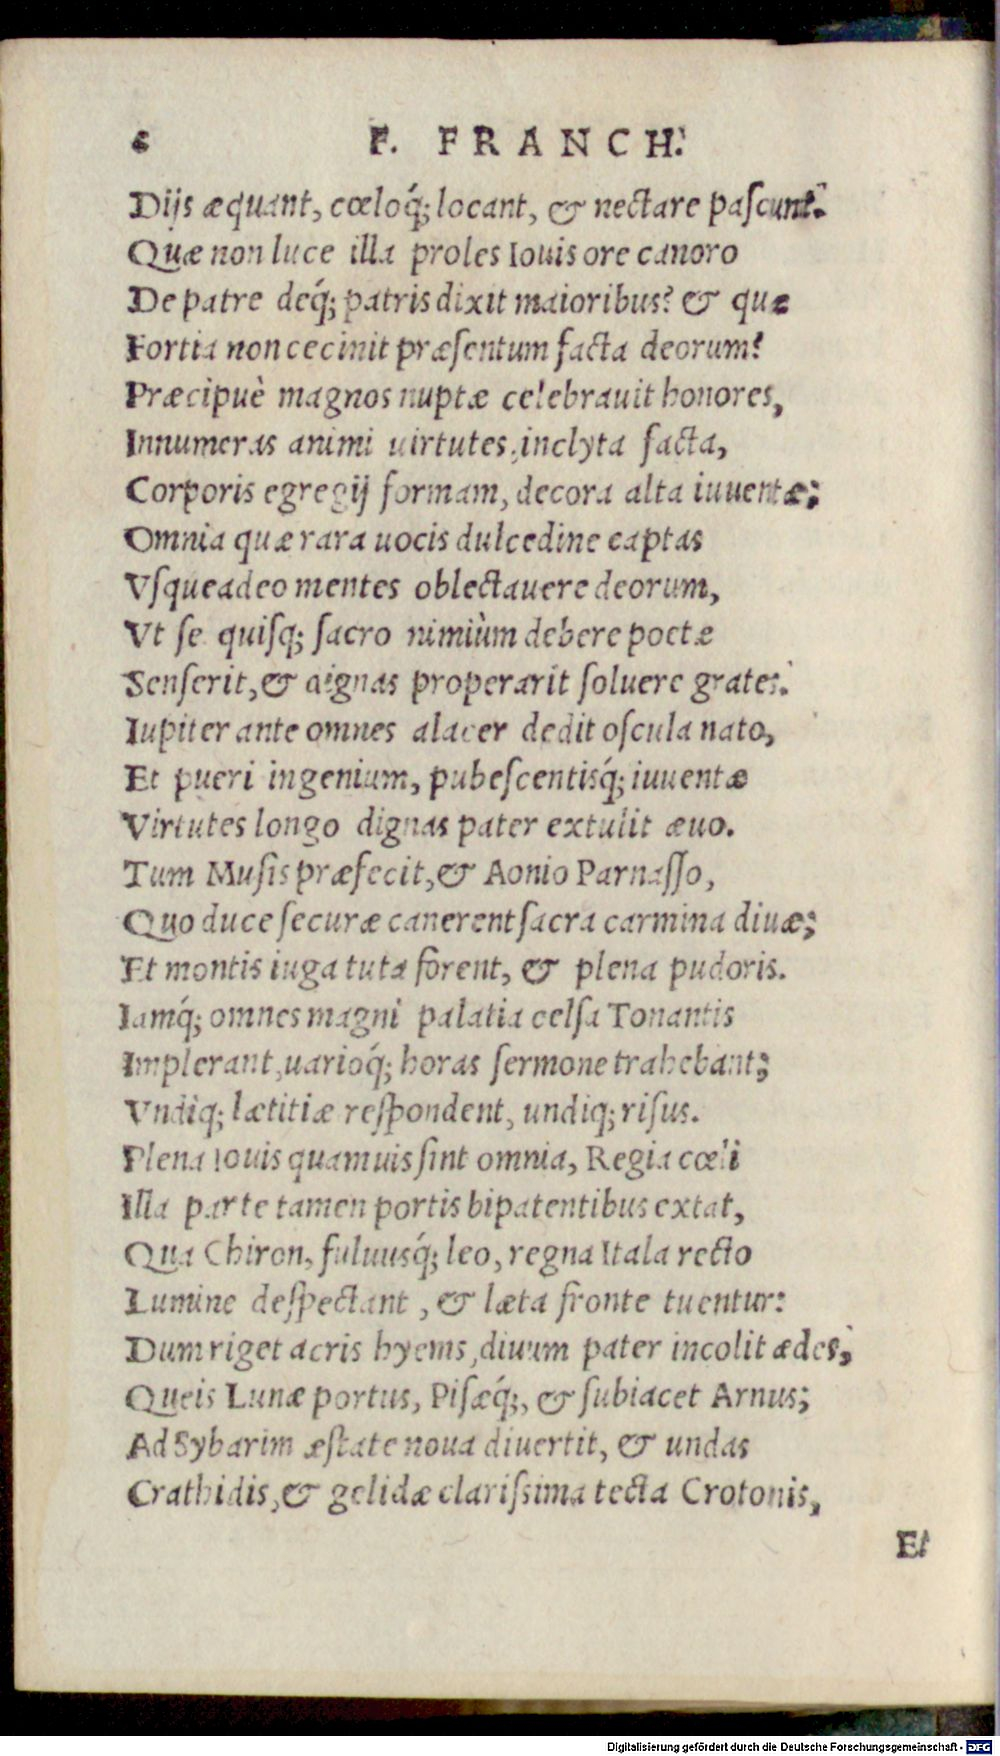 6 F. FRANCH.
Dijs æquant, cœloq́; locant, & nectare paſcunt.
Quæ non luce illa proles Iouis ore canoro
De patre deq́; patris dixit maioribus? & quæ
Fortia non cecinit præſentum facta deorum?
Præcipuè magnos nuptæ celebrauit honores,
Innumeras animi uirtutes, inclyta facta,
Corporis egregij formam, decora alta iuuentæ;
Omnia quæ rara uocis dulcedine captas
Vſqueadeo mentes oblectauere deorum,
Vt ſe quiſq; ſacro nimiùm debere poetæ
Senſerit, & dignas properarit ſoluere grates.
Iupiter ante omnes alacer dedit oſcula nato,
Et pueri ingenium, pubeſcentisq́; iuuentæ
Virtutes longo dignas pater extulit æuo.
Tum Muſis præfecit, & Aonio Parnaſſo,
Quo duce ſecuræ canerent ſacra carmina diuæ;
Et montis iuga tuta forent, & plena pudoris.
Iamq́; omnes magni palatia celſa Tonantis
Implerant, uarioq́; horas ſermone trahebant;
Vndiq; lætitiæ reſpondent, undiq; riſus.
Plena Iouis quamuis ſint omnia, Regia cœli
Illa parte tamen portis bipatentibus extat,
Qua Chiron, fuluusq́; leo, regna Itala recto
Lumine deſpectant, & læta fronte tuentur:
Dum riget acris hyems, diuum pater incolit ædes,
Queis Lunæ portus, Piſæq́;, & ſubiacet Arnus;
Ad Sybarim æſtate noua diuertit, & undas
Crathidis, & gelidæ clariſsima tecta Crotonis,
Et
Digitalisierung gefördert durch die Deutsche Forschungsgemeinschaft - DFG